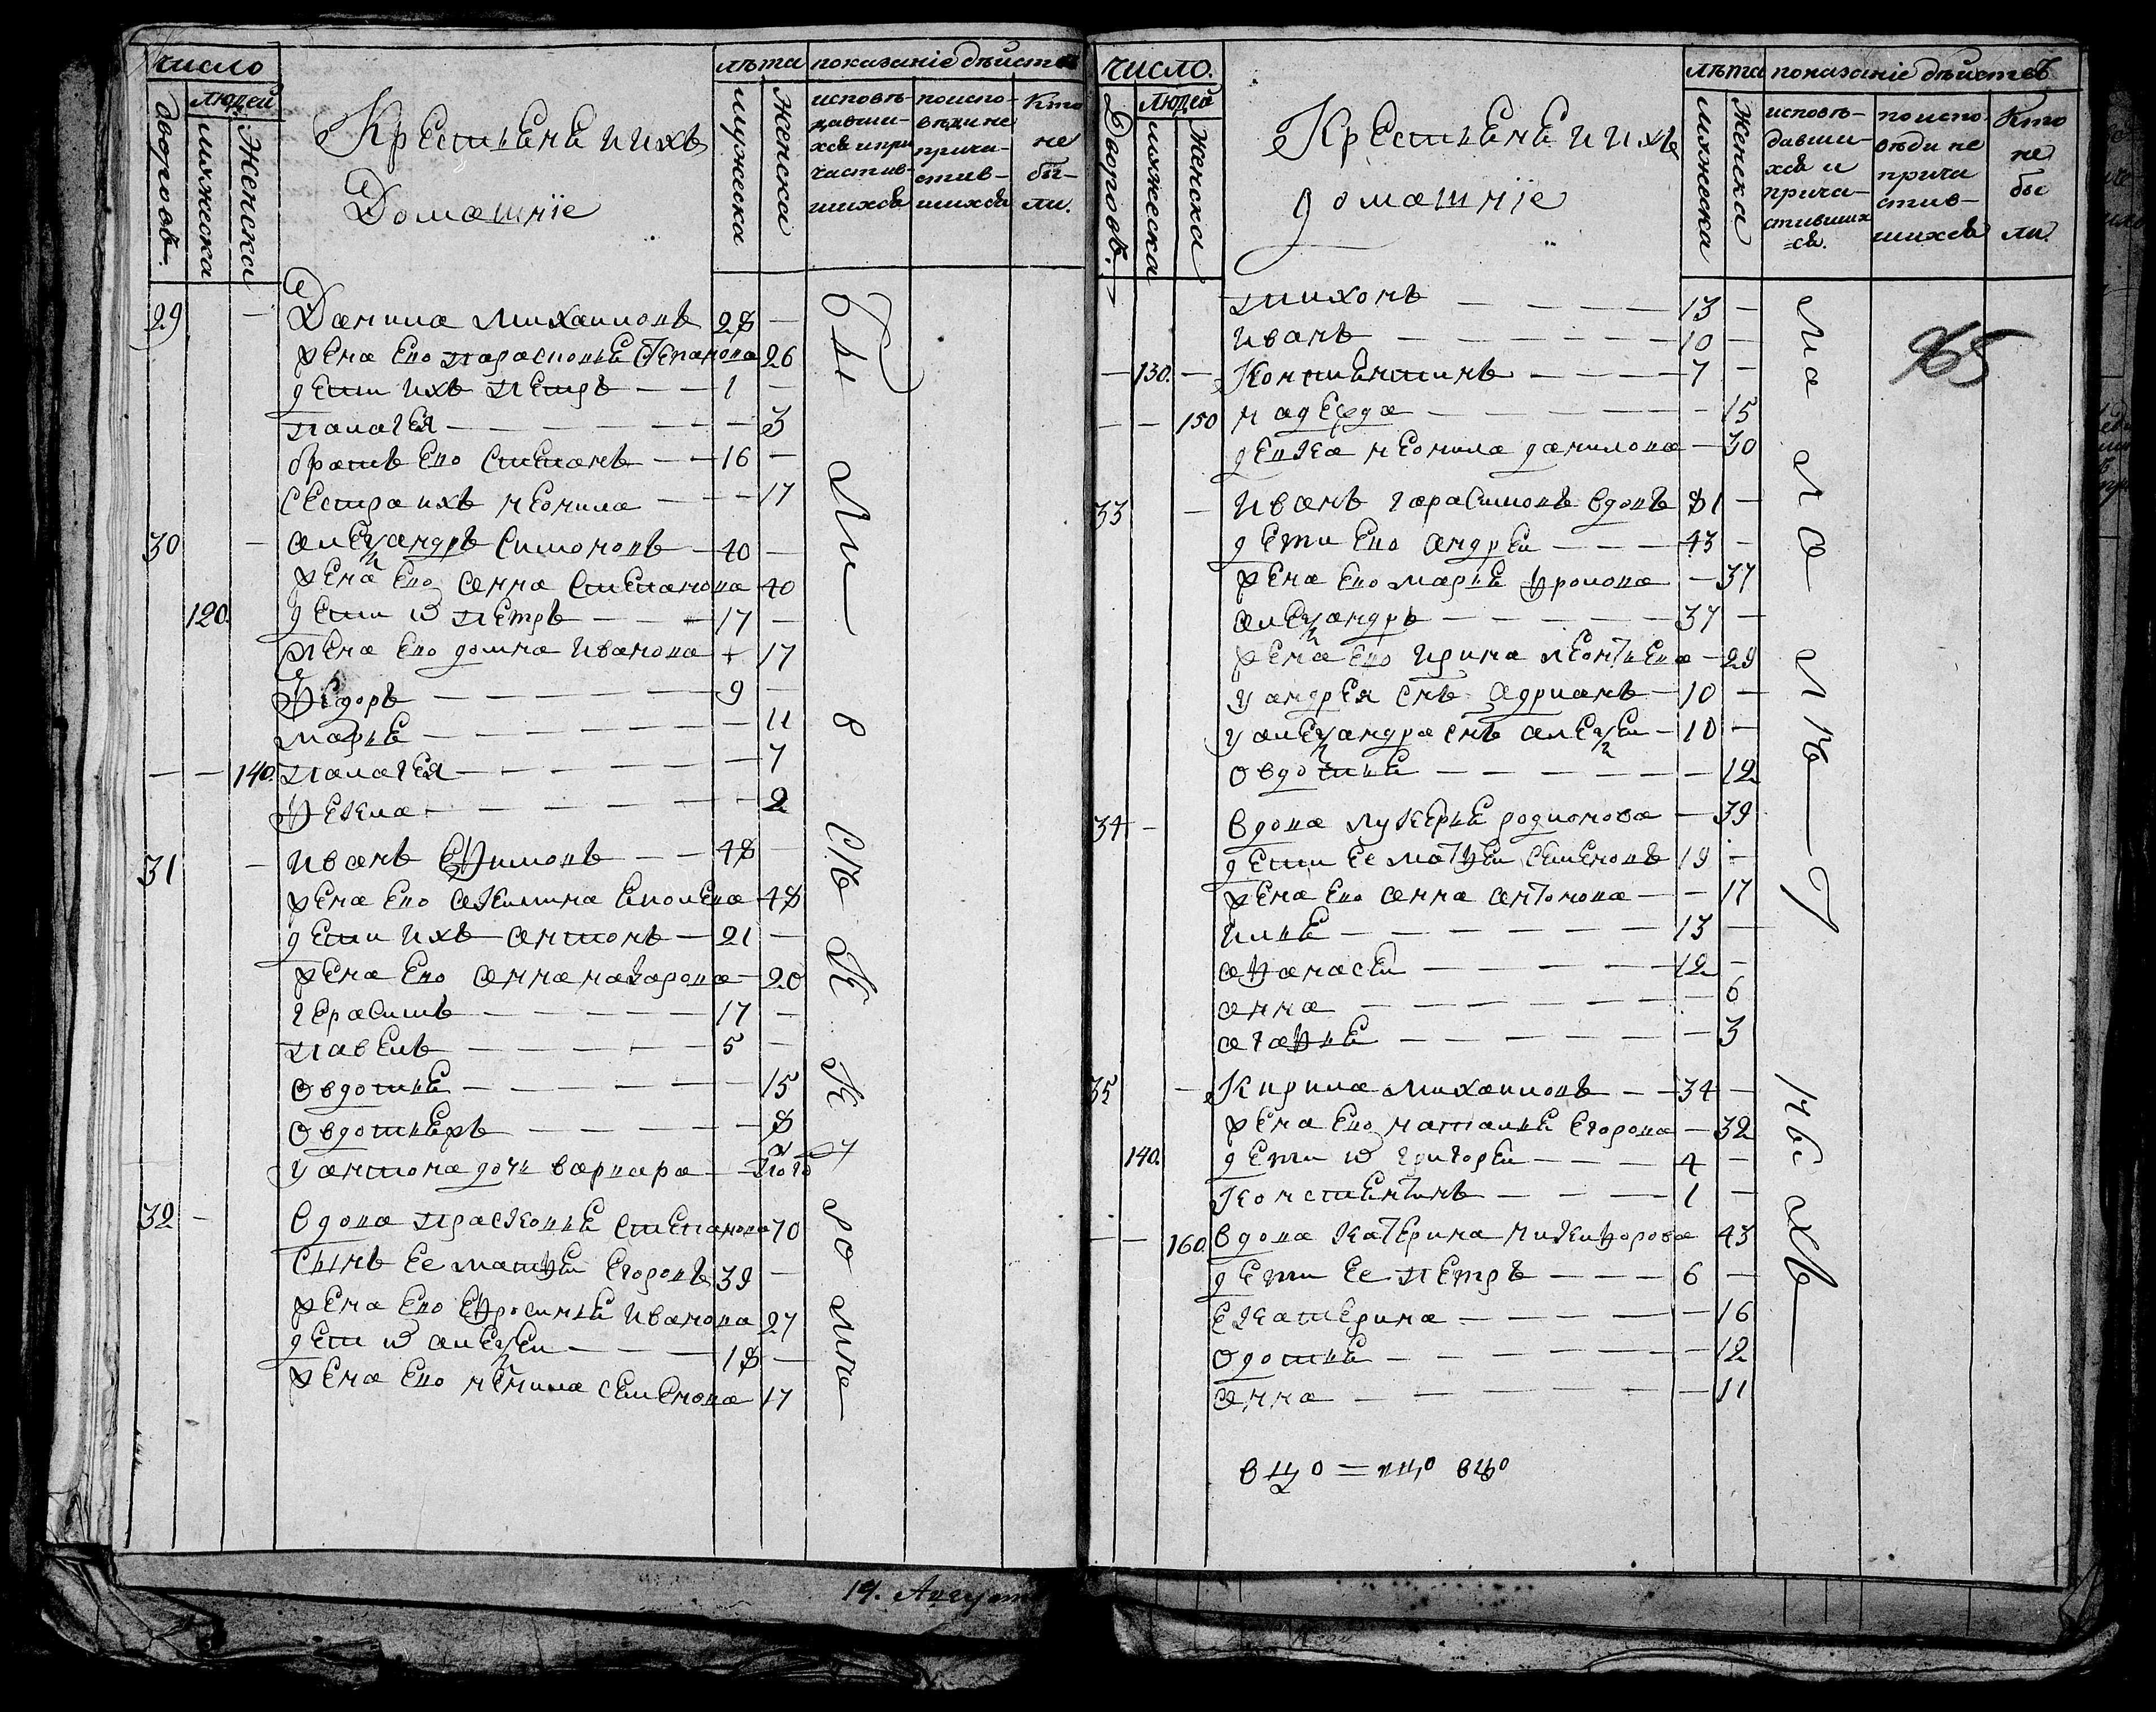 число
людей
дворовъ
мужеска
женска
Крестьяне и ихъ
Домашніе
лѣта
мужеска
женска
показаніе дѣйствъ
исповѣдавшихся и причастившихся
по исповѣди не причастившихся
кто не были.
29 Данила Михаиловъ 28
жена ево Парасковья Степанова 26
дети ихъ Петръ 1
Палагея 3
братъ ево Степанъ 16
сестра их Неонила 17
30 Александръ Симоновъ 40
жена ево Анна Степанова 40
120. дети их Петръ 17
жена ево Домна Иванова 17
Федоръ 9
Марья 11
140. Палагея 7
Фекла 2
31 Иванъ Ефимовъ 48
жена ево Акилина 48
дети ихъ Антонъ 21
жена ево Анна Макарова 20
Герасимъ 17
Павелъ 5
Овдотья 15
Овдотья ж 8
у Антона дочь Варвара
32 вдова Прасковья Степанова 70
сынъ ее Матфеи Егоровъ 39
жена ево Ефросинья Иванова 27
дети их Алексеи 18
жена ево Неонила Семенова 17
19. Август
число.
людей
дворовъ.
мужеска
женска
Крестьяне и ихъ
домашніе
лѣта
мужеска
женска
показаніе дѣйствъ
исповѣдавшихся и причастившихся.
по исповѣди не причастившихся
кто не были.
965
Тихонъ 13
Иванъ 10
130. Констентинъ 7
150 Надежда 15
девка Неонила Данилова 30
33 Иванъ Гарасимовъ вдовъ 81
дети ево Андреи 43
жена ево Марья Фролова 37
Александръ 37
жена ево Ирина Леонтьева 29
у Андрея снъ Адрианъ 10
у Александра снъ Алексеи 10
Овдотья 12
34 вдова Лукерья Родионова 39
дети ее Матфеи Семеновъ 19
жена ево Анна Антонова 17
Илья 13
Афанасеи 12
Анна 6
Агафья 3
35 Кирила Михаиловъ 34
жена ево Наталья Егорова 32
140. дети их Григореи 4
Констентинъ 1
160. вдова Катерина Никифорова 43
дети ее Петръ 6
Екатерина 16
Одотья 12
Анна 11